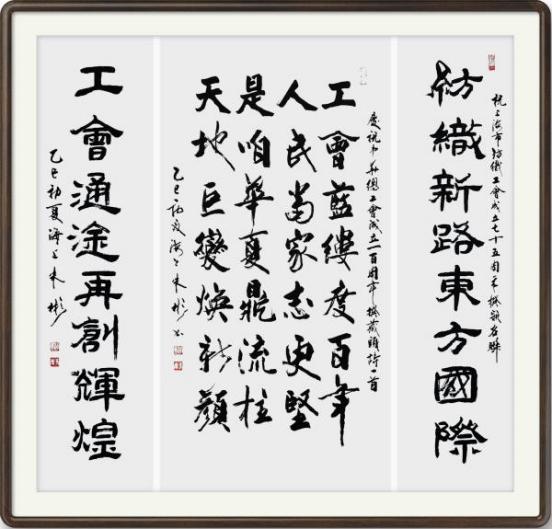 上海市紡織工會成立七十五周年撰嵌名聯
紡織新路東方國際
慶祝中華總工會成立一百周年撰藏頭詩一首
工會藍縷度百年
人民當家志更堅
是咱華夏鼎流柱
天地巨變煥新顏
乙巳初夏海上朱彬書
工會通途再創輝煌
乙巳初夏海上朱彬